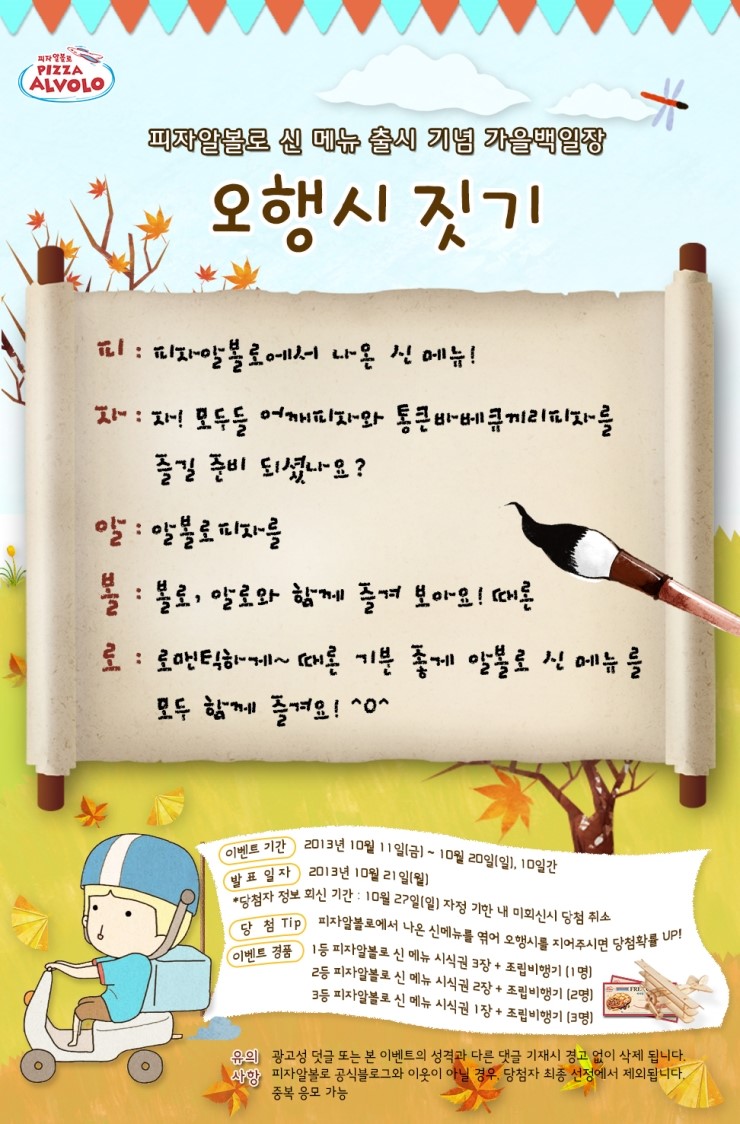 피자알볼로
PIZZA
ALVOLO
피자알볼로 신 메뉴 출시 기념 가을백일장
오행시 짓기
피 : 피자알볼로에서 나온 신 메뉴!
자 : 자! 모두들 어깨피자와 통큰바베큐끼리피자를
즐길 준비 되셨나요?
알 : 알볼로피자를
볼 : 볼로, 알로와 함께 즐겨 보아요! 때론
로 : 로맨틱하게~ 때론 기분 좋게 알볼로 신 메뉴를
모두 함께 즐겨요! ^O^
이벤트 기간 2013년 10월 11일(금) ~ 10월 20일(일), 10일간
발표 일자 2013년 10월 21일(월)
*당첨자 정보 회신 기간 : 10월 27일(일) 자정 기한 내 미회신시 당첨 취소
당 첨 Tip 피자알볼로에서 나온 신메뉴를 엮어 오행시를 지어주시면 당첨확률 UP!
이벤트 경품 1등 피자알볼로 신 메뉴 시식권 3장 + 조립비행기 (1명)
2등 피자알볼로 신 메뉴 시식권 2장 + 조립비행기 (2명)
3등 피자알볼로 신 메뉴 시식권 1장 + 조립비행기 (3명)
유의 사항 광고성 덧글 또는 본 이벤트의 성격과 다른 댓글 기재시 경고 없이 삭제 됩니다.
피자알볼로 공식블로그와 이웃이 아닐 경우, 당첨자 최종 선정에서 제외됩니다.
중복 응모 가능